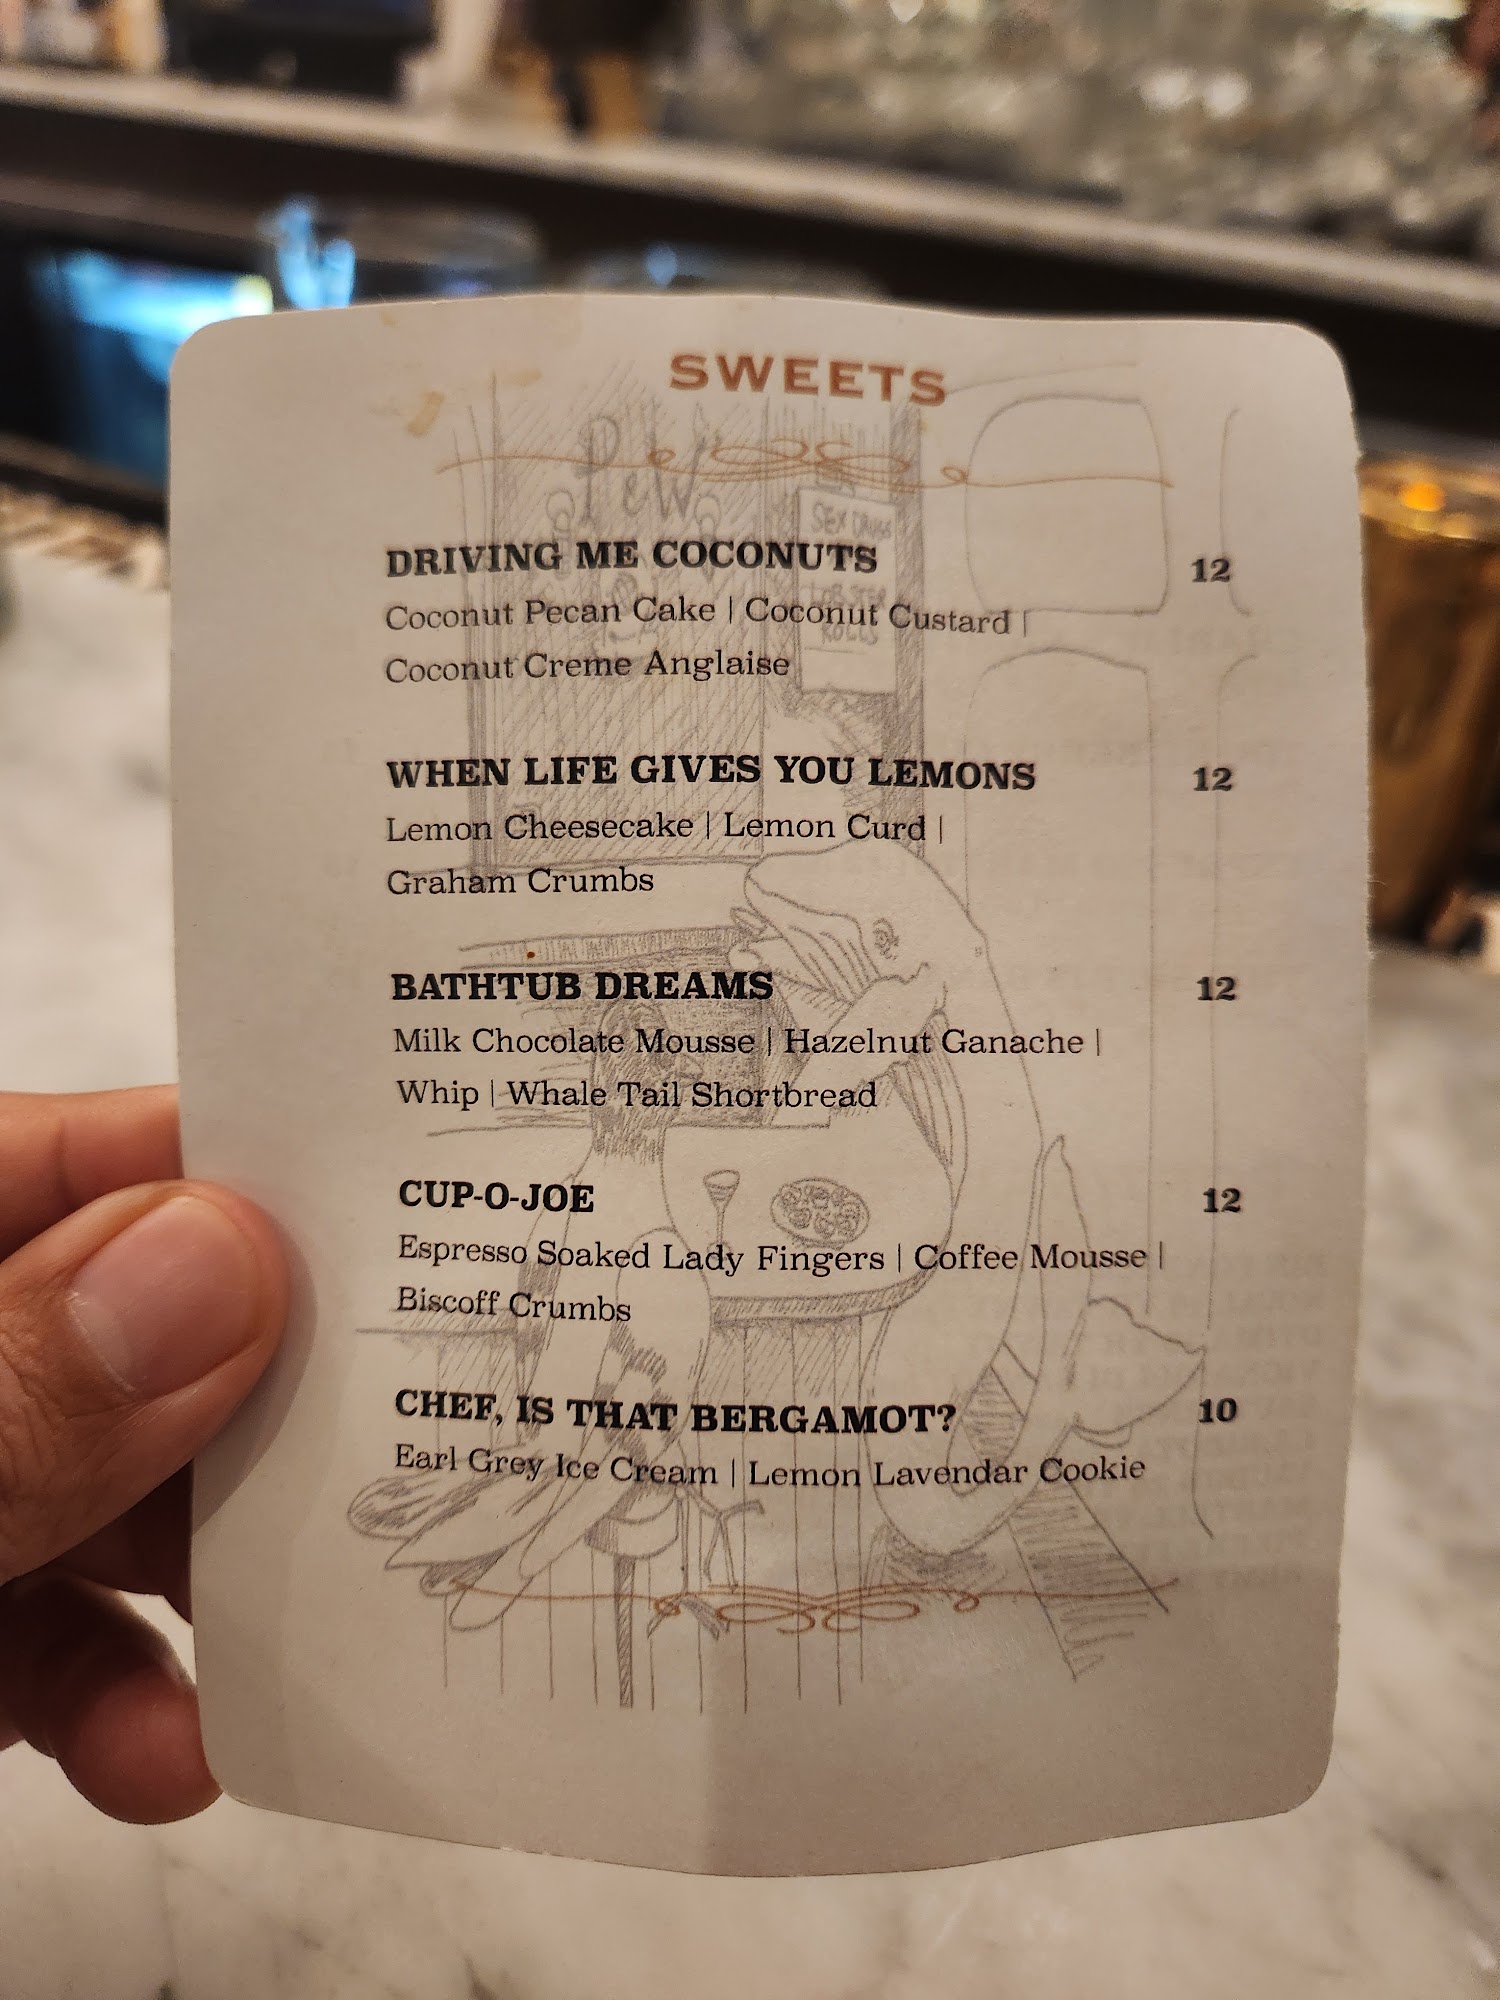 SWEETS
P & W
SEX DRUGS
LOBSTER
ROLLS
DRIVING ME COCONUTS 12
Coconut Pecan Cake | Coconut Custard |
Coconut Creme Anglaise
WHEN LIFE GIVES YOU LEMONS 12
Lemon Cheesecake | Lemon Curd |
Graham Crumbs
BATHTUB DREAMS 12
Milk Chocolate Mousse | Hazelnut Ganache |
Whip | Whale Tail Shortbread
CUP-O-JOE 12
Espresso Soaked Lady Fingers | Coffee Mousse |
Biscoff Crumbs
CHEF, IS THAT BERGAMOT? 10
Earl Grey Ice Cream | Lemon Lavendar Cookie